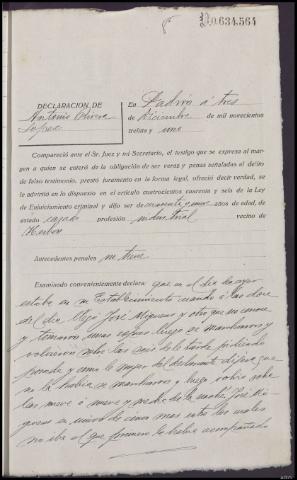 0.634.564
DECLARACION DE
Antonio
López
En Padrón á tres
de Diciembre de mil novecientos
treinta y uno
Compareció ante el Sr. Juez y mi Secretario, el testigo que se expresa al margen
a quien se enteró de la obligación de ser veraz y penas señaladas al delito
de falso testimonio, prestó juramento en la forma legal, ofreció decir verdad, se
le advirtió en lo dispuesto en el artículo cuatrocientos cuarenta y seis de la Ley
de Enjuiciamiento criminal y dijo ser de cincuenta y nueve años de edad, de
estado casado profesión industrial vecino de
Herbón
Antecedentes penales no tiene
Examinado convenientemente declara: que en el día de ayer
estaba en su Establecimiento cuando á las doce
del día llegó José y otro que no conoce
y tomaron unas copas luego se marcharon y
volvieron sobre las seis de la tarde pidiendo
posada, y como la mujer del declarante dijera que
no la había se marcharon y luego volvió sobre
las nueve ó nueve y media de la noche José
en unión de cinco mas entre los cuales
no iba el que primero le había acompañado